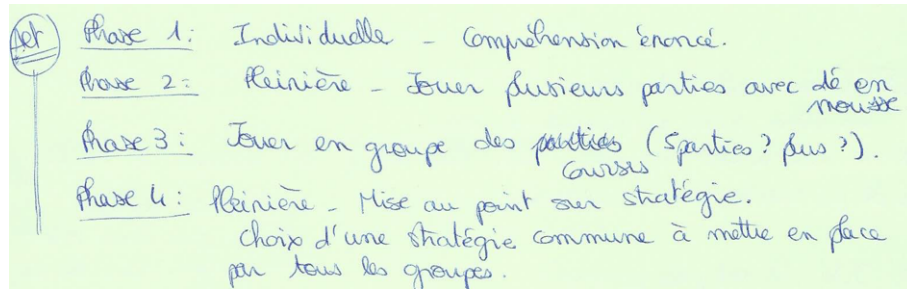 Act Phase 1: Individuelle - Compréhension énoncé.
Phase 2: Pleinière - Jouer plusieurs parties avec dé en
mousse
Phase 3: Jouer en groupe des parties (5 parties ? plus ?).
courses
Phase 4: Pleinière - Mise au point sur stratégie.
Choix d'une stratégie commune à mettre en place
par tous les groupes.